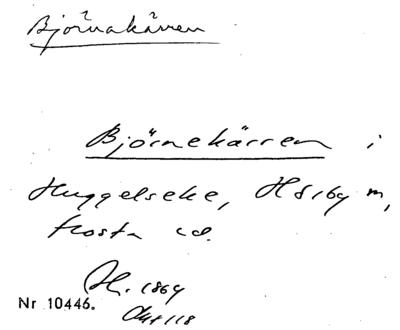 Björnakärren
Björnekärren i
Huggelseke, Hörby m,
Frosta hd.
H. 1869
Akt 118
Nr 10446.